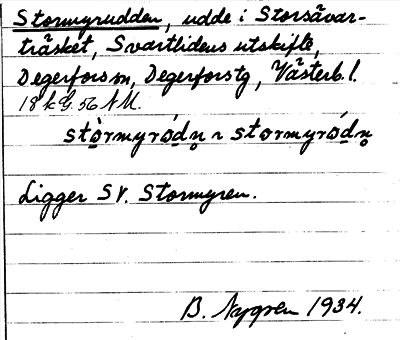 Stormyrudden, udde i Storsävar-
träsket, Svartlidens utskifte,
Degerfors sn, Degerfors tg, Västerb. l.
18 k G. 56 N M.
stòrmyródn̥ ~ stormyródn̥
Ligger SV. Stormyren.
B. Nygren 1934.